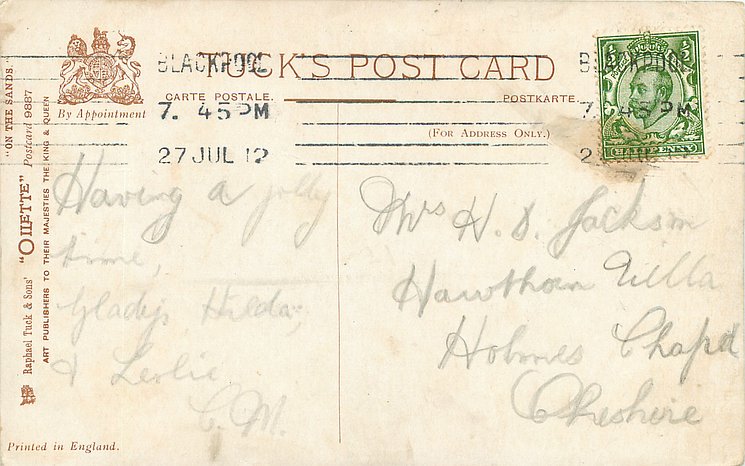 TUCK'S POST CARD
CARTE POSTALE.
POSTKARTE.
(FOR ADDRESS ONLY.)
By Appointment
BLACKPOOL
7. 45 PM
27 JUL 12
BLACKPOOL
7. 45 PM
HALFPENNY
"ON THE SANDS."
Raphael Tuck & Sons' "OILETTE" Postcard 9887
ART PUBLISHERS TO THEIR MAJESTIES THE KING & QUEEN
Having a jolly
time,
Gladys Hilda,
& Leslie
C. M.
Mrs H. S. Jackson
Hawthorn Villa
Holmes Chapel
Cheshire
Printed in England.